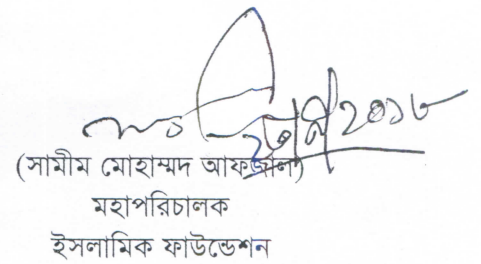 ২০১৮
(সামীম মোহাম্মদ আফজাল)
মহাপরিচালক
ইসলামিক ফাউন্ডেশন